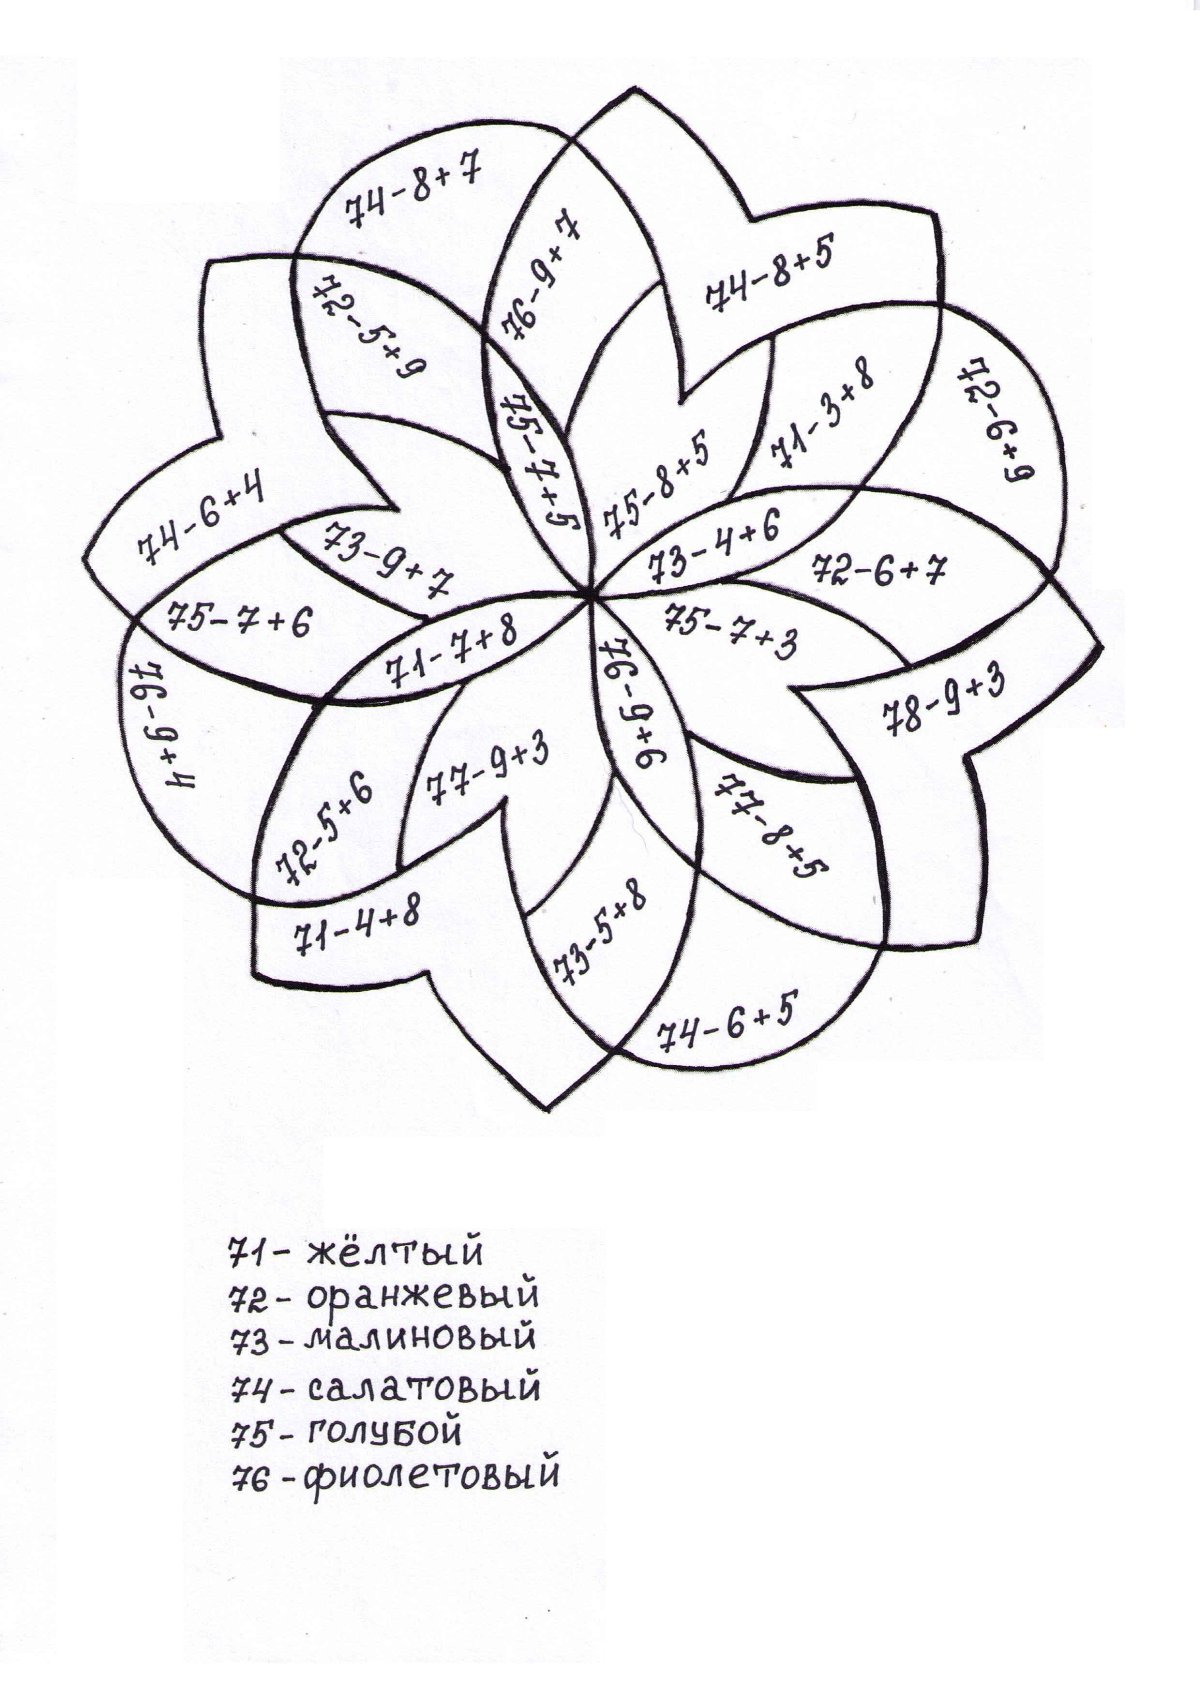 74-8+7
76-9+7
74-8+5
72-5+9
72-6+9
71-3+8
75-7+5
75-8+5
74-6+4
73-9+7
73-4+6
72-6+7
75-7+6
71-7+8
75-7+3
76-9+6
76-9+4
78-9+3
77-9+3
77-8+5
72-5+6
71-4+8
73-5+8
74-6+5
71- жёлтый
72- оранжевый
73- малиновый
74- салатовый
75- голубой
76- фиолетовый